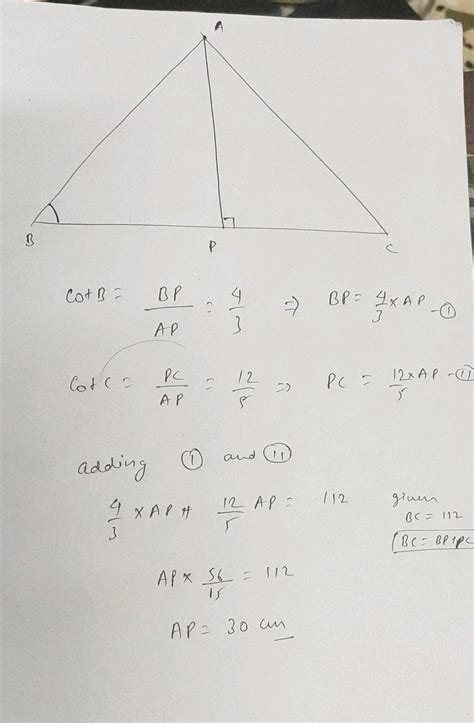 A
B P C
Cot B = BP/AP = 4/3 ⇒ BP = 4/3 × AP - ①
Cot C = PC/AP = 12/5 ⇒ PC = 12/5 × AP - ⑪
adding ① and ⑪
4/3 × AP + 12/5 AP = 112 given
BC = 112
BC = BP+PC
AP × 56/15 = 112
AP = 30 cm